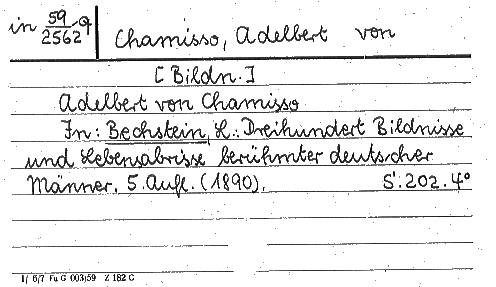 in 59/2562-9 Chamisso, Adelbert von
[Bildn.]
Adelbert von Chamisso
In: Bechstein, L.: Dreihundert Bildnisse
und Lebensabrisse berühmter deutscher
Männer. 5. Aufl. (1890).  S. 202. 4°
1/ 6/7 Fu G 003/59 Z 182 C